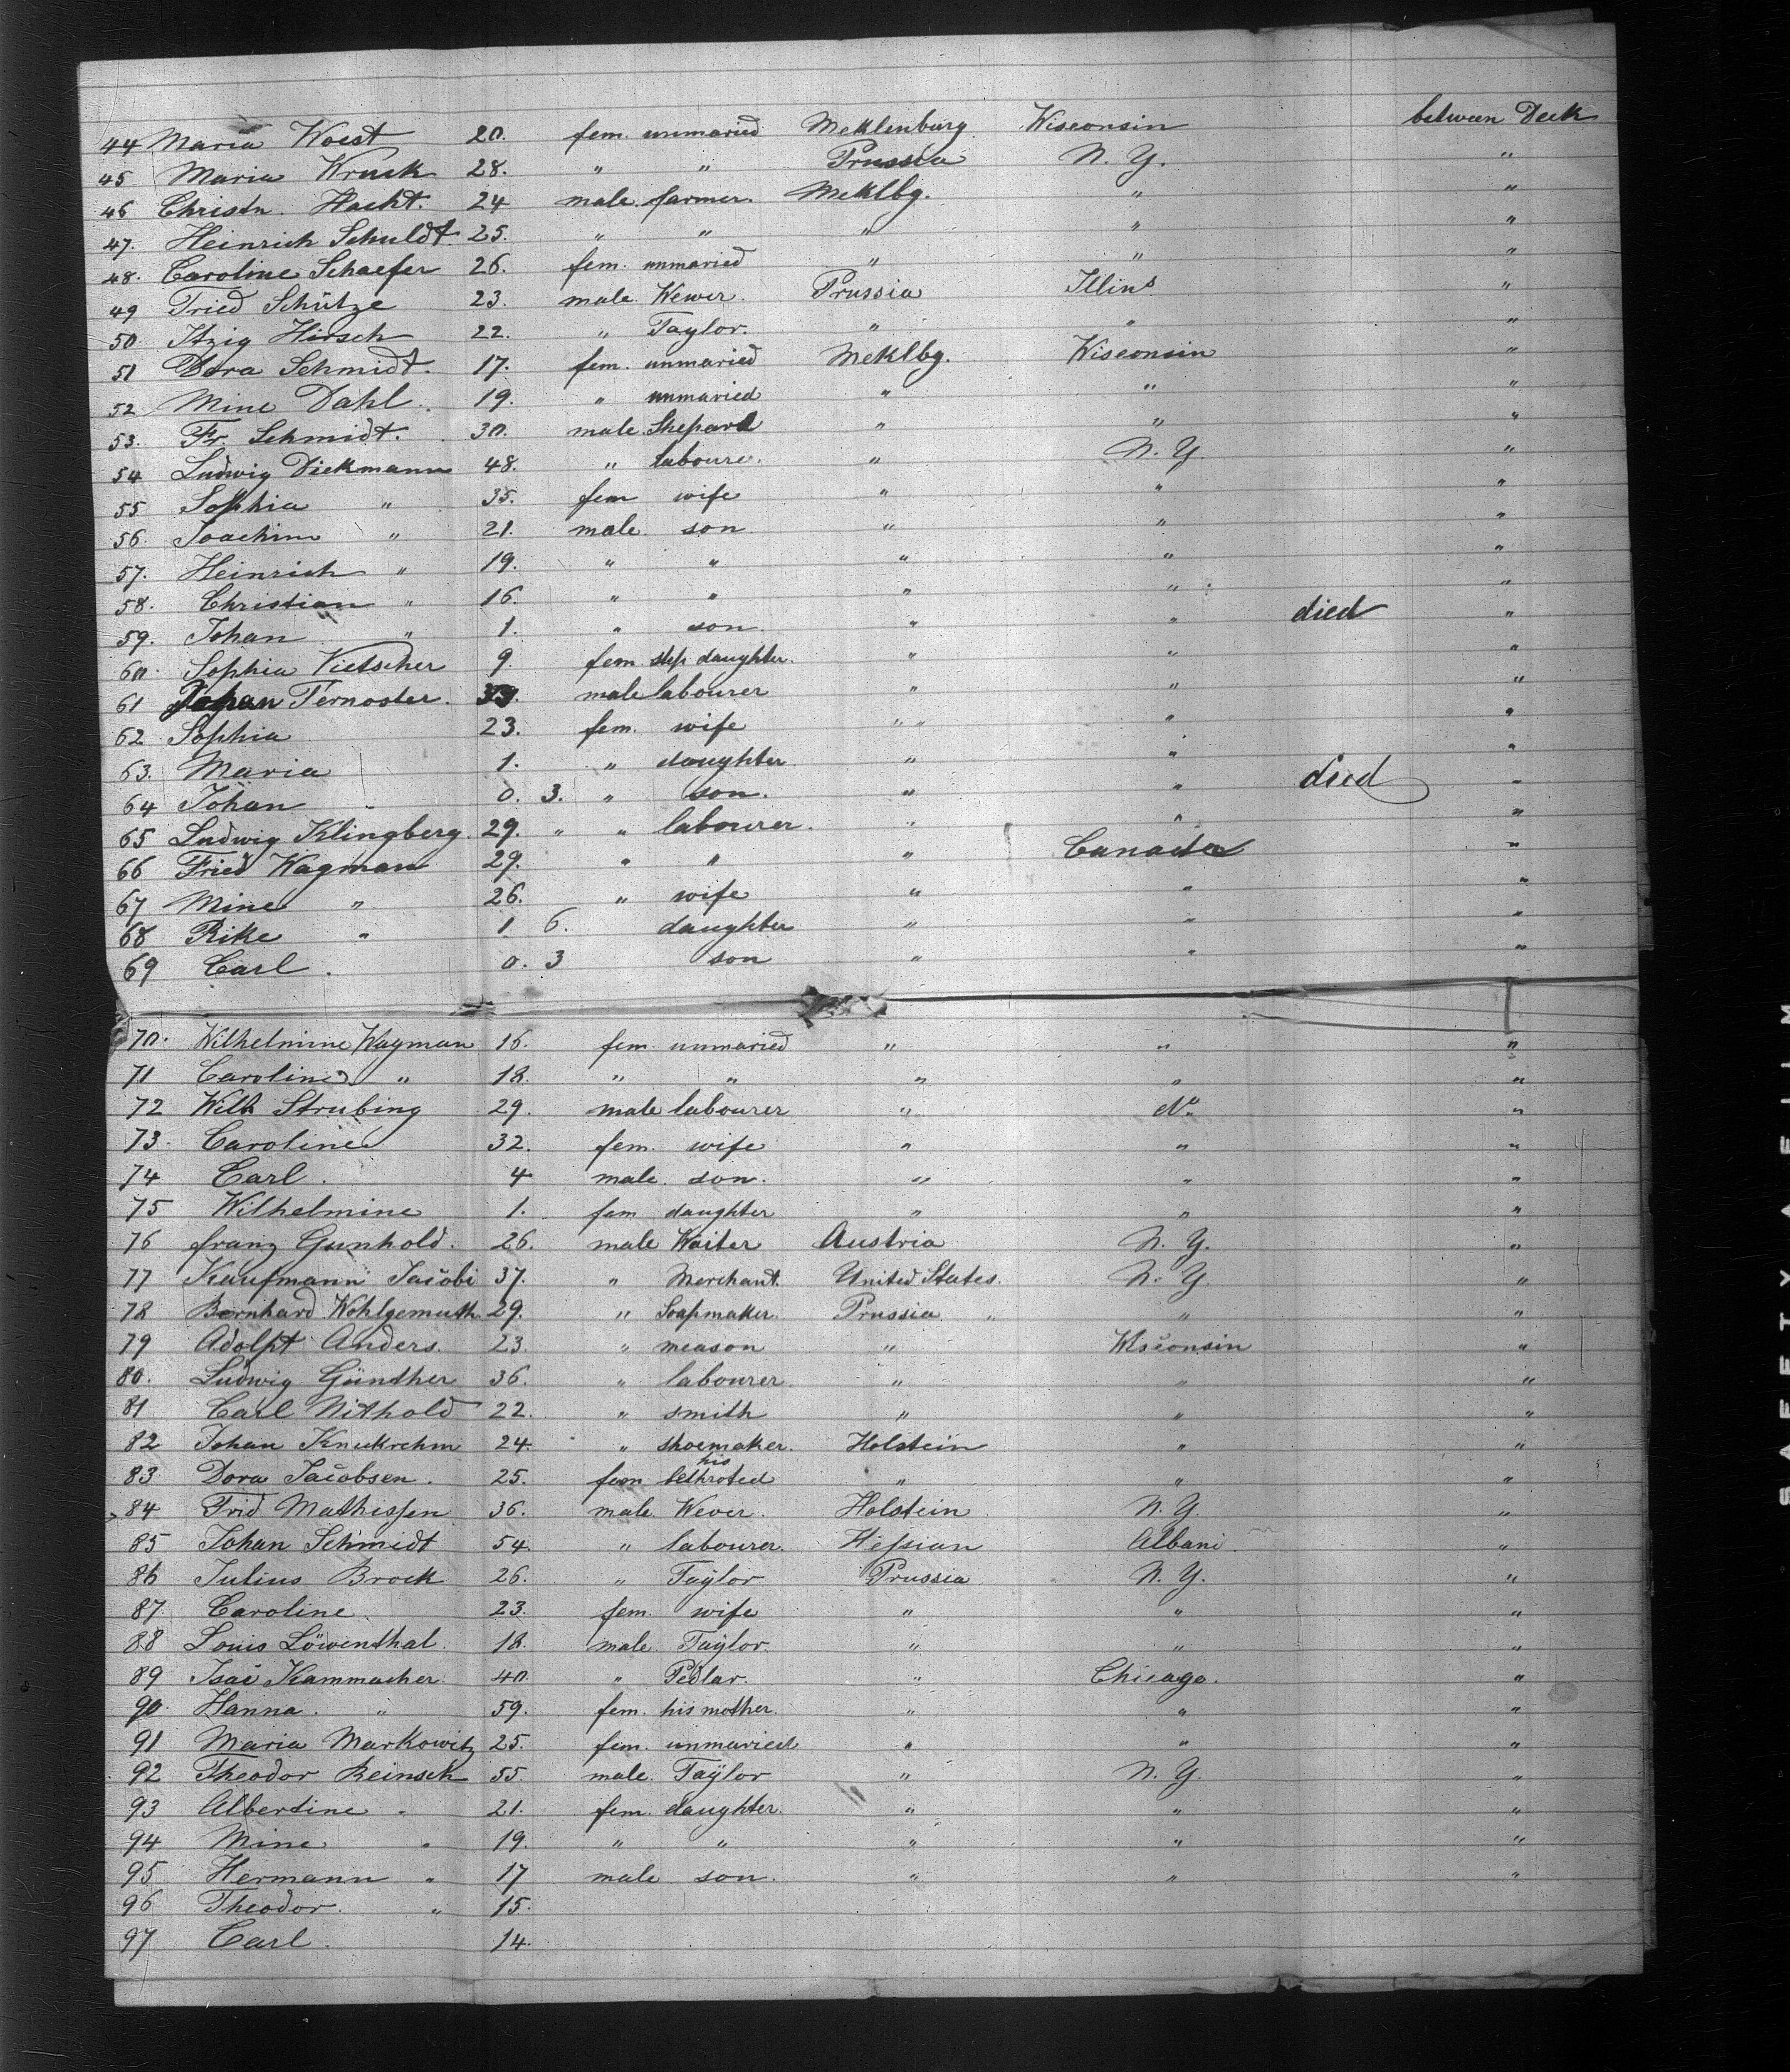 44 Maria Woest 20. fem. unmaried Meklenburg Wisconsin between Deck
45 Maria Wruck 28. " " Prussia N. Y. "
46 Christn. Hacht. 24 male. farmer. Meklbg. " "
47. Heinrich Schuldt. 25. " " " " "
48. Caroline Schaefer 26. fem. unmaried " " "
49 Fried Schütze 23. male. Wewer. Prussia Illins "
50. Itzig Hirsch 22. " Taylor. " " "
51 Dora Schmidt. 17. fem. unmaried Meklbg. Wisconsin "
52 Mine Dahl. 19. " unmaried " " "
53. Fr. Schmidt. 30. male. Shepard " " "
54 Ludwig Diekmann 48. " laboure. " N. Y "
55 Sophia " 35. fem wife " " "
56. Joachim " 21. male. son " " "
57. Heinrich " 19. " " " " "
58. Christian " 16. " " " " "
59. Johan " 1. " son " " died "
60. Sophia Vietscher 9. fem. step daughter. " " "
61 Johan Fernoster. male labourer " " "
62 Sophia 23. fem. wife " " " "
63. Maria 1. " daughter " " "
64 Johan " 0. 3. " son. " " died "
65 Ludwig Klingberg. 29. " " labourer. " " "
66 Fried Wagman 29. " " " Canada "
67 Mine " 26. " wife " " "
68 Rike " 1 6. daughter " " "
69 Carl. 0. 3 son " " "
70. Wilhelmine Wagman 16. fem. unmaried " " "
71 Caroline " 18. " " " " "
72 Wilh Strubing 29. male labourer " do "
73. Caroline 32. fem. wife " " "
74 Carl. 4 male. son. " " "
75 Wilhelmine 1. fem daughter " " "
76 franz Gunhold. 26. male Waiter Austria N. Y. "
77 Kaufmann Jacobi 37. " Merchant. United States. N. Y. "
78 Bernhard Wohlgemuth 29. " Soapmaker. Prussia " " "
79 Adolpt Anders. 23. " meason " Wisconsin "
80. Ludwig Günther 36. " labourer. " " "
81 Carl Nithold 22. " smith " " "
82 Johan Knukrehm 24. " shoemaker. Holstein " "
83 Dora Jacobsen. 25. fem his bethroted " " "
84 Frid Mathissen 36. male. Wever. Holstein N. Y. "
85 Johan Schmidt 54. " labourer. Hessian Albani. "
86 Julius Brock 26. " Taylor Prussia N. Y. "
87. Caroline 23. fem. wife " " "
88 Louis Löwenthal. 18. male. Taylor. " " "
89 Isac Kammacher. 40. " Pedlar. " Chicago. "
90. Hanna. " 59. fem. his mother. " " "
91 Maria Markowitz 25. fem. unmaried " " "
92 Theodor Reinsch 55. male. Taylor " N. Y. "
93 Albertine " 21. fem. daughter. " " "
94 Mine " 19. " " " " "
95 Hermann " 17 male son. " " "
96 Theodor. " 15.
97 Carl. 14.